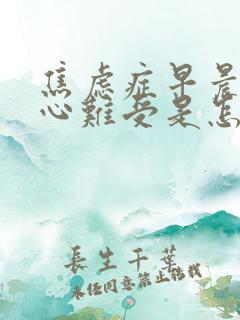 焦虑症早晨
心難受是怎
長生千葉
未经同意禁止转载